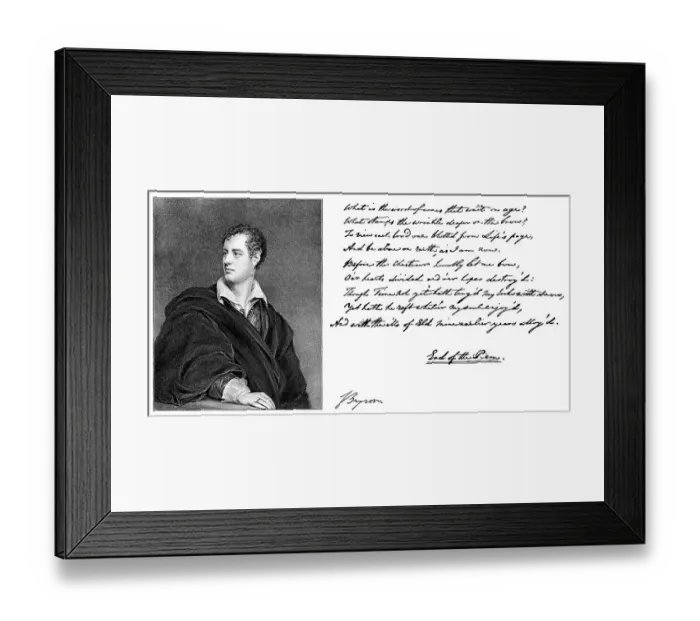 What is the worst of woes that wait on age?
What stamps the wrinkle deeper on the brow?
To view each lov'd one blotted from Life's page,
And be alone on earth, as I am now.
Before the Chastener humbly let me bow,
O'er hearts divided and o'er hopes destroy'd:
Though Time not yet hath ting'd my locks with snow,
Yet hath he reft whate'er my soul enjoy'd,
And with the ills of Eld mine earlier years alloy'd.
End of the Poem.
Byron